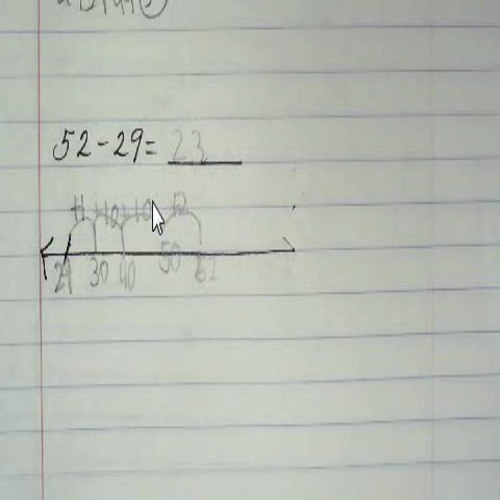 52-29= 23
+1 +10 +10 +2
29 30 40 50 52